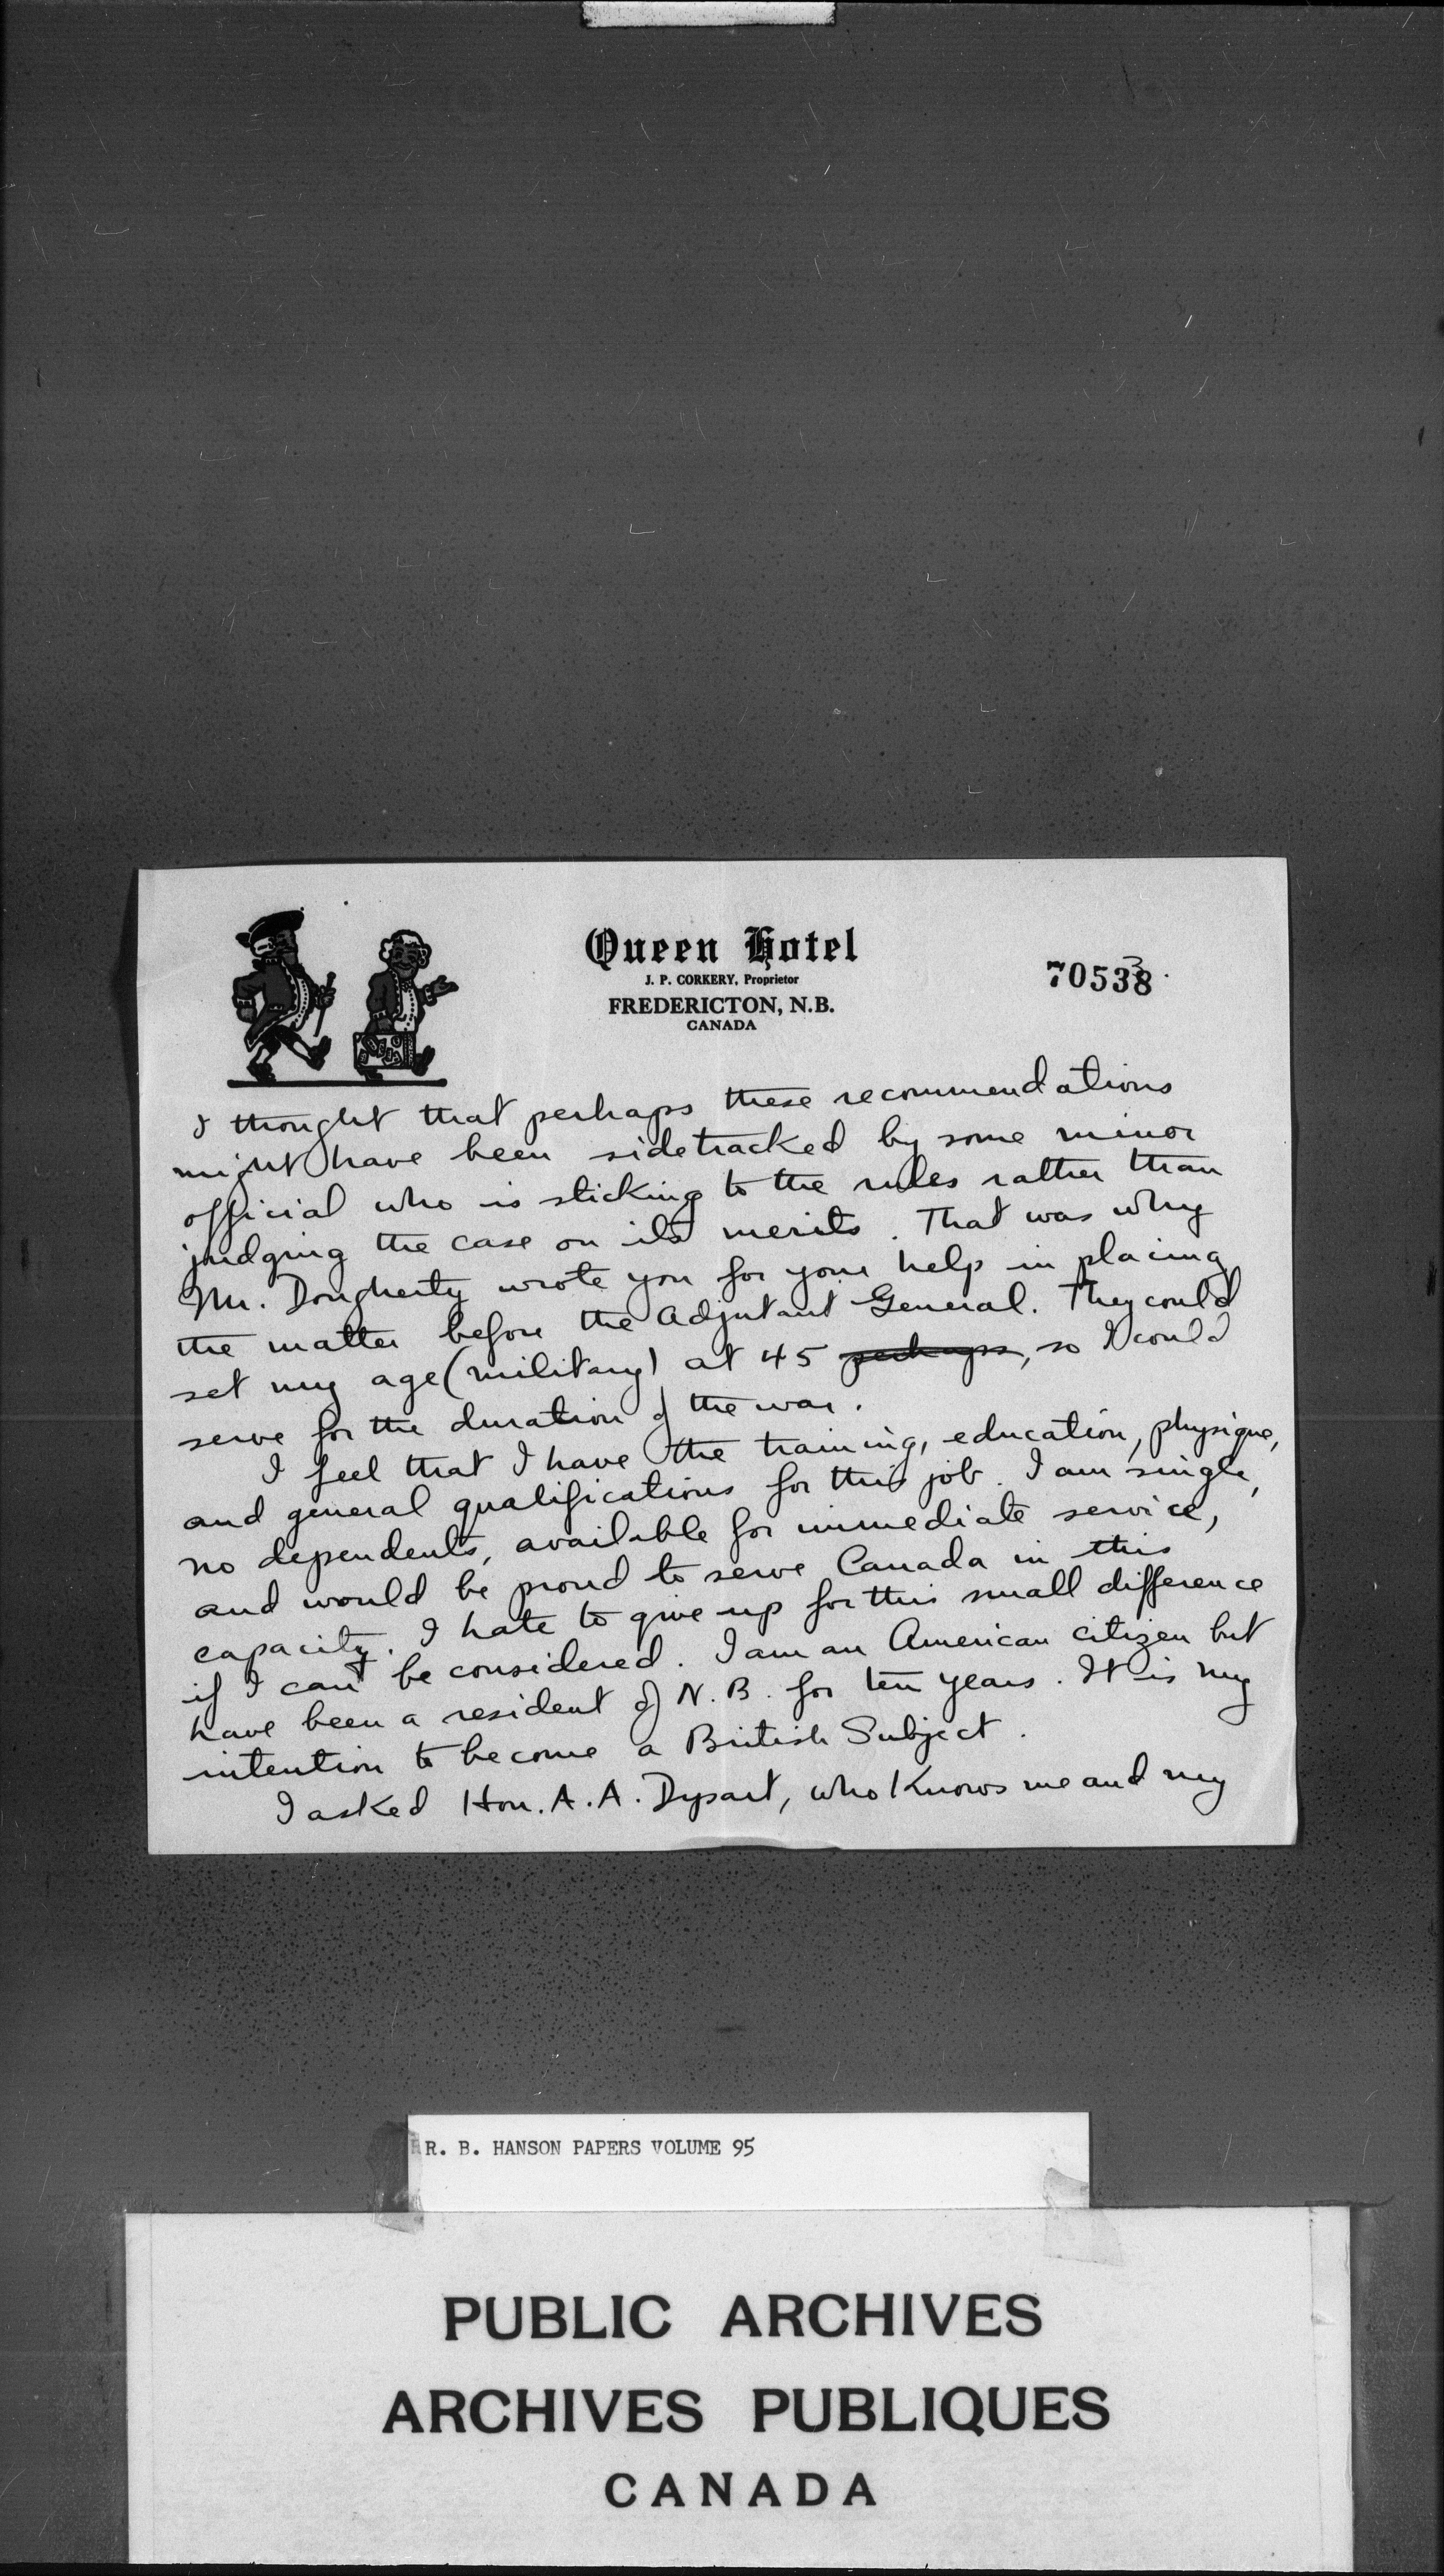 Queen Hotel
J. P. CORKERY, Proprietor
FREDERICTON, N.B.
CANADA
70538
3
I thought that perhaps these recommendations
might have been sidetracked by some minor
official who is sticking to the rules rather than
judging the case on its merits. That was why
Mr. Dougherty wrote you for your help in placing
the matter before the Adjutant General. They could
set my age (military) at 45 perhaps, so I could
serve for the duration of the war.
I feel that I have the training, education, physique,
and general qualifications for this job. I am single,
no dependents, available for immediate service,
and would be proud to serve Canada in this
capacity. I hate to give up for this small difference
if I can be considered. I am an American citizen but
have been a resident of N.B. for ten years. It is my
intention to become a British Subject.
I asked Hon. A. A. Dysart, who knows me and my
R. B. HANSON PAPERS VOLUME 95
PUBLIC ARCHIVES
ARCHIVES PUBLIQUES
CANADA